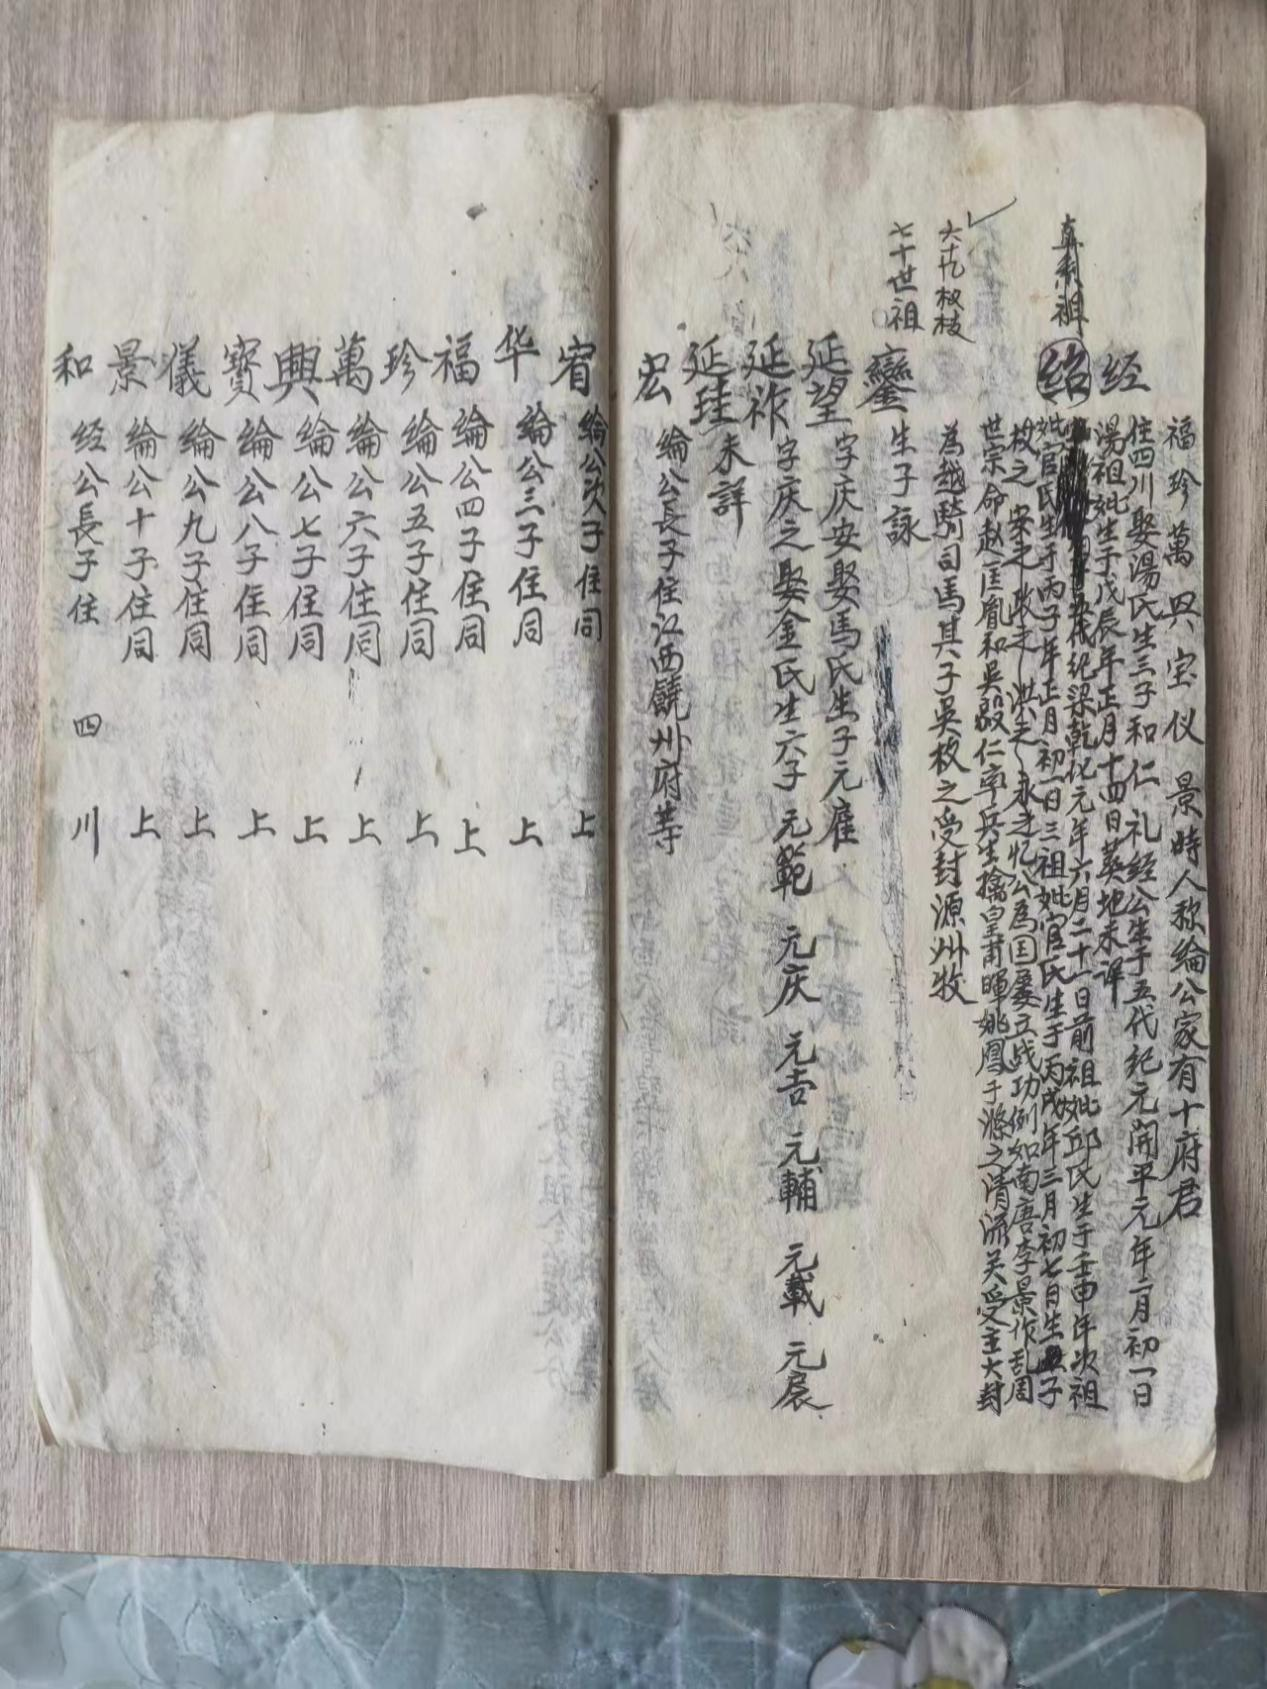 福珍萬興宝仪 景時人称綸公家有十府君
经 住四川娶湯氏生三子和仁 礼经公生于五代纪元開平元年二月初一日
湯祖妣生于戊辰年正月十四日葬地未详
真系祖 绍 纪梁乾化元年六月二十一日前祖妣邱氏生于壬申年次祖
妣官氏生于丙子年正月初一日三祖妣官氏生于丙戌年三月初七日生五子
枚之 荣之 之 洪之 永之忆公為国屡立战功例如南唐李景作乱周
世宗命赵匡胤和吴毅仁率兵生擒皇甫暉姚鳳于滁之清流关受主大封
六十九枚枝
為越騎司馬其子吴枚之受封源州牧
七十世祖
鑾 生子詠
延望 字庆安娶馬氏生子元雇
延祚 字庆之娶金氏生六子 元範 元庆 元吉 元輔 元載 元展
延珪 未詳
宏 綸公長子住江西饒州府等
宥 綸公次子住同 上
华 綸公三子住同 上
福 綸公四子住同 上
珍 綸公五子住同 上
萬 綸公六子住同 上
興 綸公七子住同 上
寶 綸公八子住同 上
儀 綸公九子住同 上
景 綸公十子住同 上
和 经公長子住 四 川